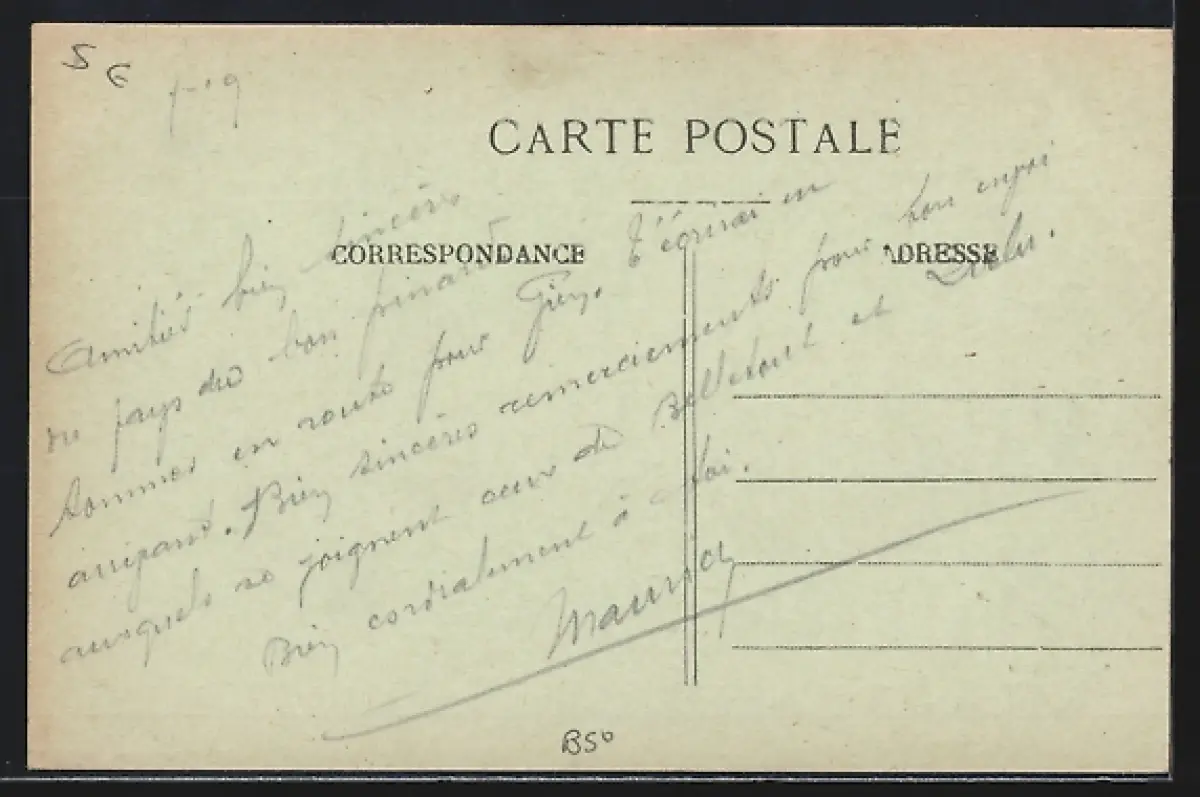 5 G
CARTE POSTALE
CORRESPONDANCE
ADRESSE
Amitiés bien sincères
du pays du bon pinard
Sommes en route pour Gien. T'écrirai en
arrivant. Bien sincères remerciements pour ton envoi
auxquels se joignent ceux de et
Bien cordialement à toi.
Maurice
B50